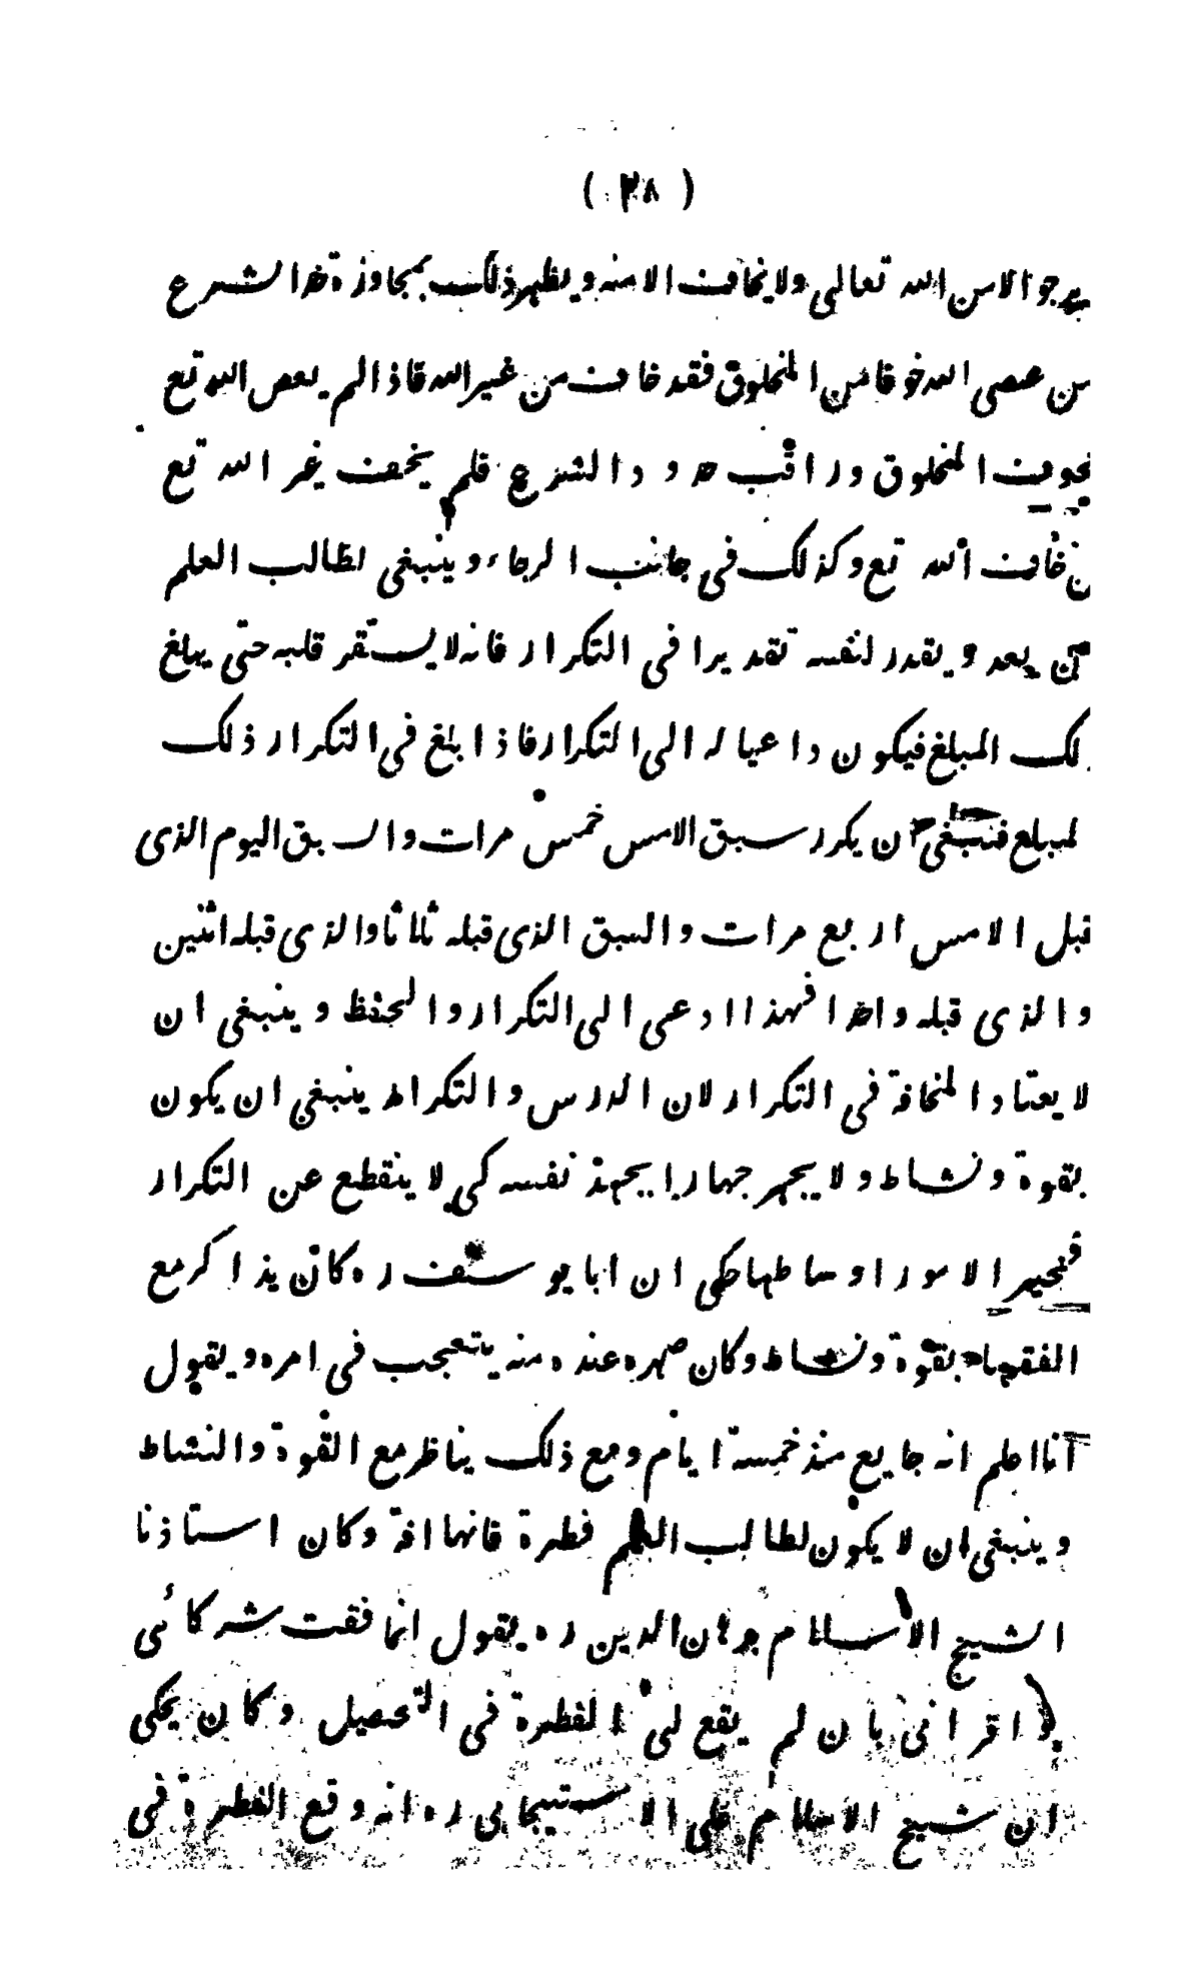 ( ٢٨ )
يرجو الا من الله تعالى ولا يخاف الا منه ويظهر ذلك بمجاوزة حد الشرع
من عصى الله خوفا من المخلوق فقد خاف من غير الله فاذا لم يعص الله تع
المخلوق وراقب حدود الشرع فلم يخف غير الله تع
خاف الله تع وكذلك فى جانب الرجاء وينبغى لطالب العلم
يعد ويقدر لنفسه تقديرا فى التكرار فانه لا يستقر قلبه حتى يبلغ
لك المبلغ فيكون داعيا له الى التكرار فاذا بلغ فى التكرار ذلك
لمبلغ فينبغى ان يكرر سبق الامس خمس مرات والسبق اليوم الذى
قبل الامس اربع مرات والسبق الذى قبله ثلاثا والذى قبله اثنين
والذى قبله واحدا فهذا ادعى الى التكرار والحفظ وينبغى ان
لا يعتاد المخافة فى التكرار لان الدرس والتكرار ينبغى ان يكون
بقوة ونشاط ولا يجهر جهارا يجهد نفسه كى لا ينقطع عن التكرار
فخير الامور اوساطها حكى ان ابا يوسف ره كان يذاكر مع
الفقهاء بقوة ونشاط وكان صهره عنده منه يتعجب فى امره ويقول
انا اعلم انه جايع منذ خمسة ايام ومع ذلك يناظر مع القوة والنشاط
وينبغى ان لا يكون لطالب العلم فطرة فانها افة وكان استاذنا
الشيخ الاسلام برهان الدين ره يقول انما فقت شركائى
و اقرانى بان لم يقع لى الفطرة فى التحصيل وكان يحكى
ان شيخ الاسلام على الاستيجابى ره انه وقع الفطرة فى